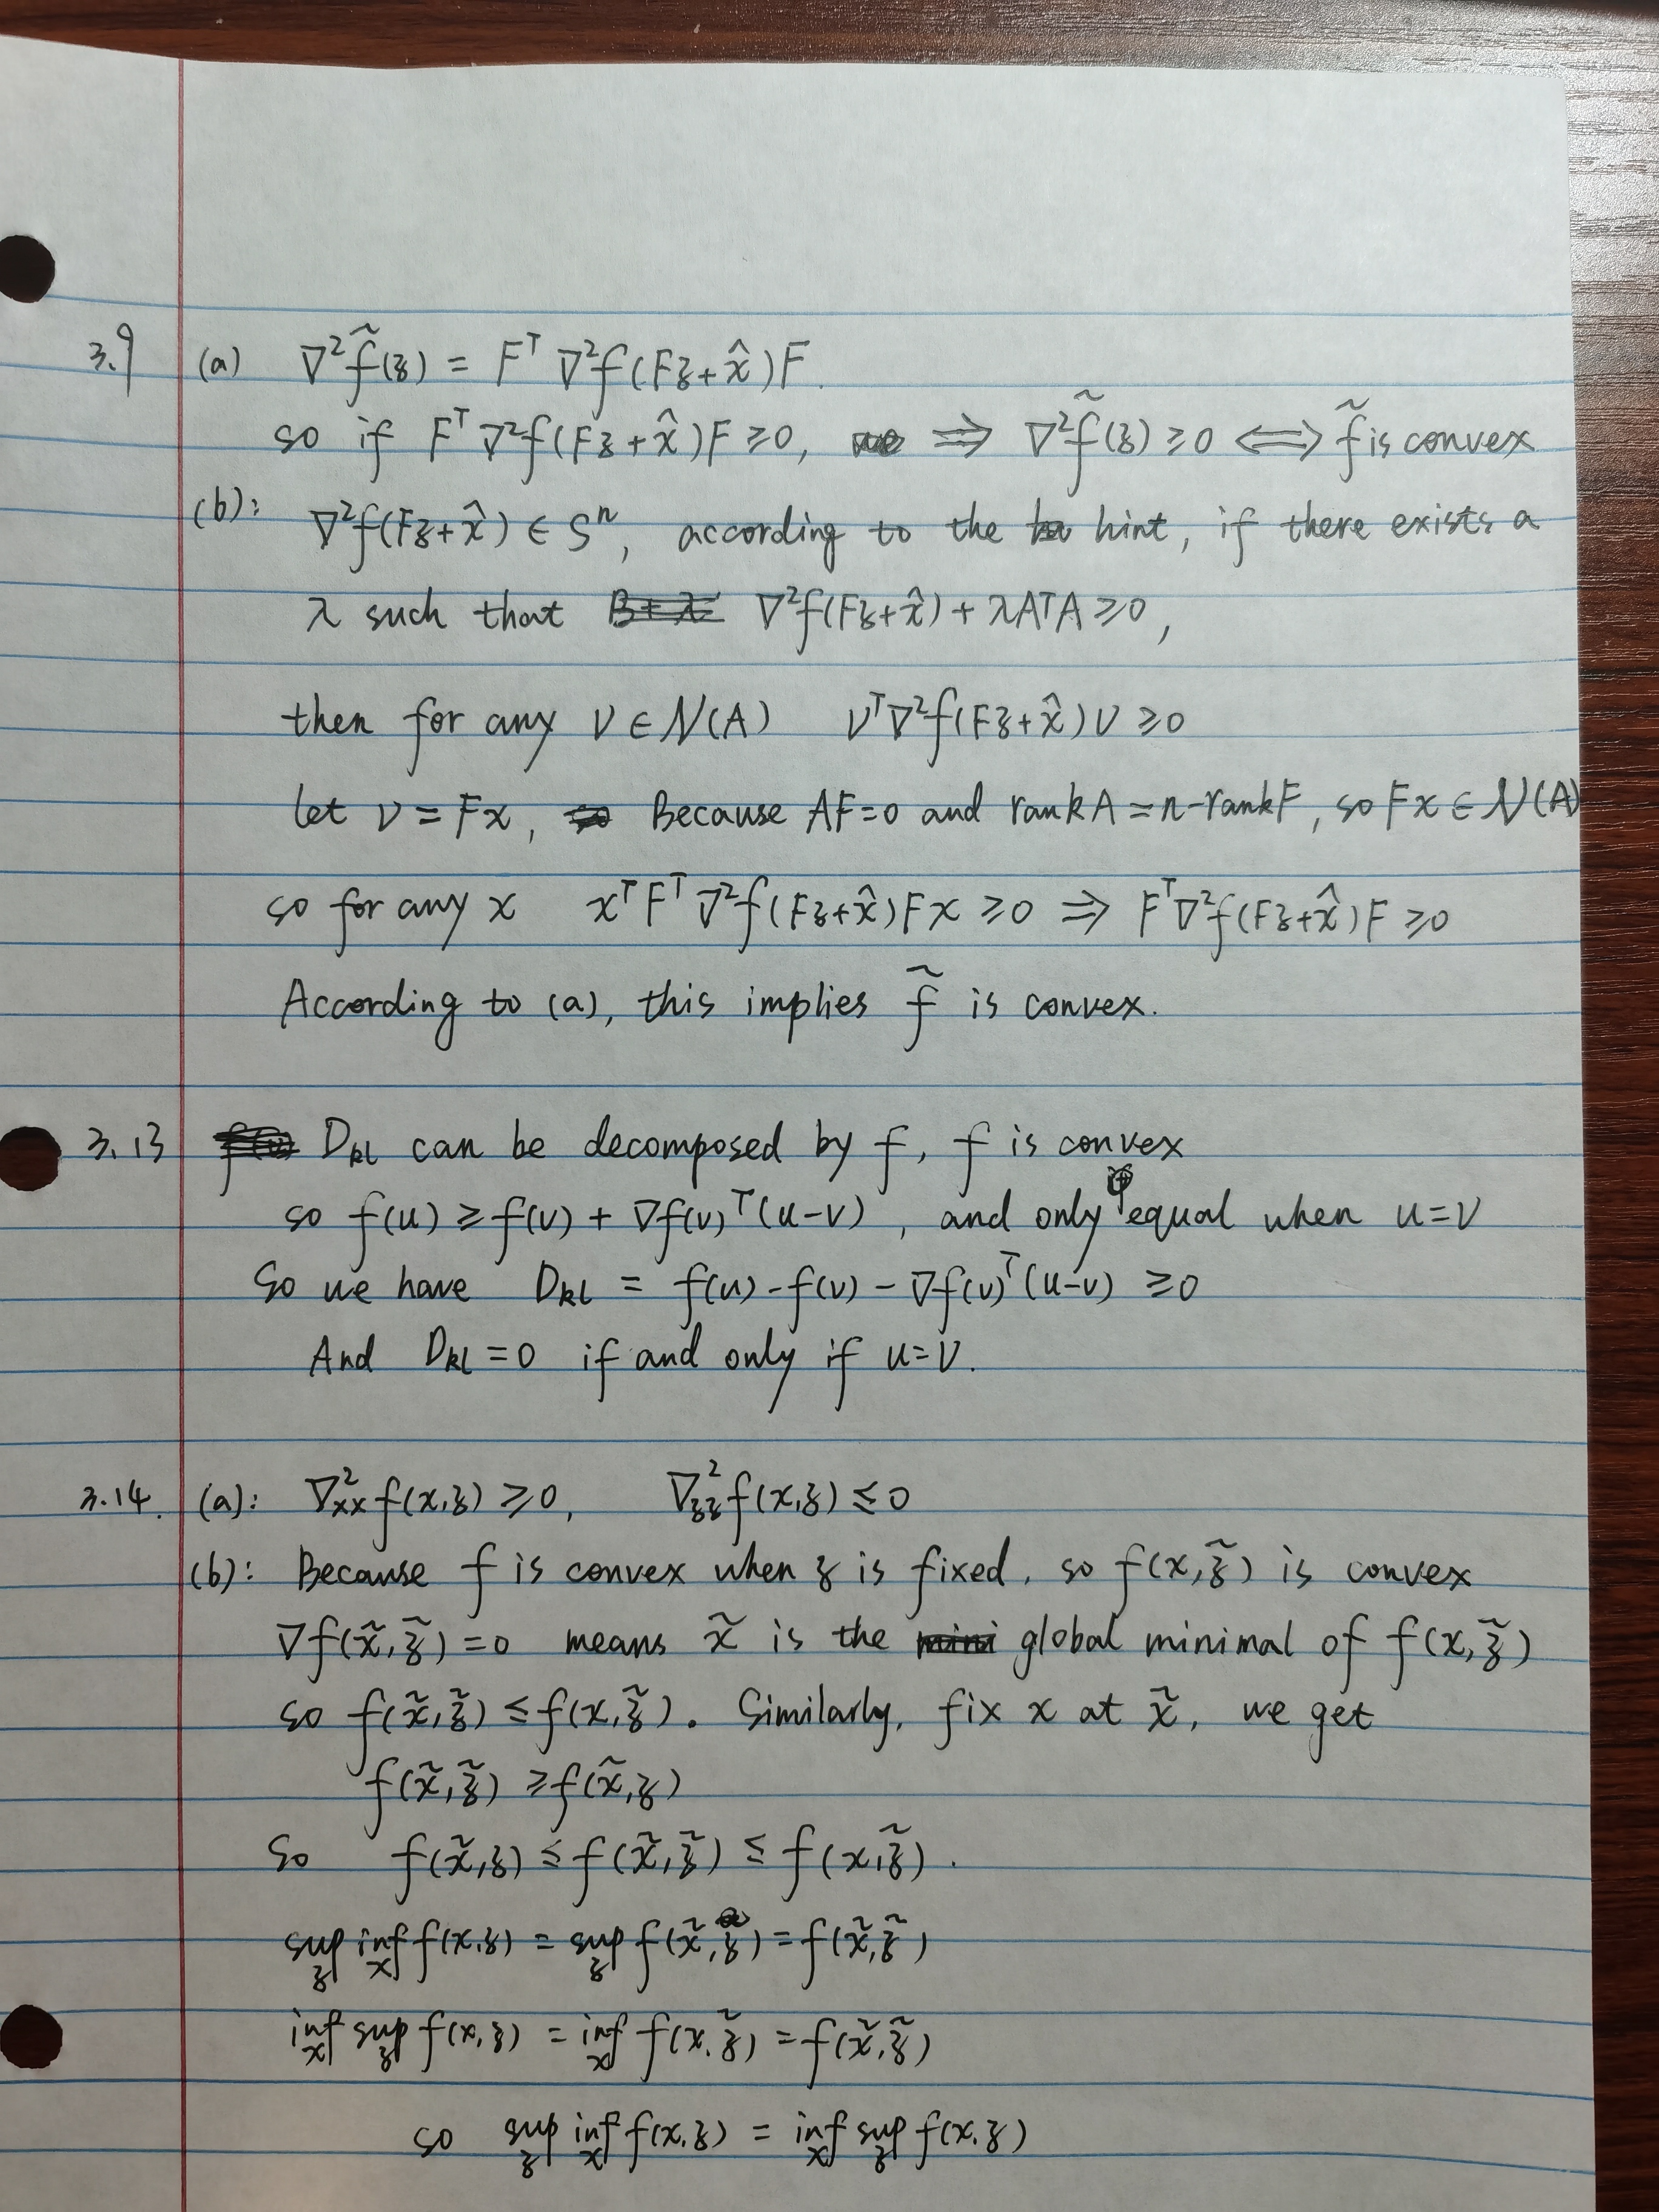 3.9 (a) ∇²f̃(z) = Fᵀ ∇²f(Fz+x̂)F.
so if Fᵀ∇²f(Fz+x̂)F ≥ 0, ⇒ ∇²f̃(z) ≥ 0 ⟺ f̃ is convex
(b): ∇²f(Fz+x̂) ∈ Sⁿ, according to the hint, if there exists a
λ such that ∇²f(Fz+x̂) + λAᵀA ≥ 0,
then for any v ∈ N(A) vᵀ∇²f(Fz+x̂)v ≥ 0
let v = Fx, Because AF=0 and rank A = n-rank F, so Fx ∈ N(A)
so for any x xᵀFᵀ∇²f(Fz+x̂)Fx ≥ 0 ⇒ Fᵀ∇²f(Fz+x̂)F ≥ 0
According to (a), this implies f̃ is convex.
3.13 Dkl can be decomposed by f, f is convex
so f(u) ≥ f(v) + ∇f(v)ᵀ(u-v), and only equal when u=v
So we have Dkl = f(u) - f(v) - ∇f(v)ᵀ(u-v) ≥ 0
And Dkl = 0 if and only if u=v.
3.14. (a): ∇²xx f(x,z) ≥ 0, ∇²zz f(x,z) ≤ 0
(b): Because f is convex when z is fixed, so f(x,z̃) is convex
∇f(x̃,z̃)=0 means x̃ is the global minimal of f(x,z̃)
so f(x̃,z̃) ≤ f(x,z̃). Similarly, fix x at x̃, we get
f(x̃,z̃) ≥ f(x̃,z)
So f(x̃,z) ≤ f(x̃,z̃) ≤ f(x,z̃).
sup_z inf_x f(x,z) = sup_z f(x̃,z) = f(x̃,z̃)
inf_x sup_z f(x,z) = inf_x f(x,z̃) = f(x̃,z̃)
so sup_z inf_x f(x,z) = inf_x sup_z f(x,z)